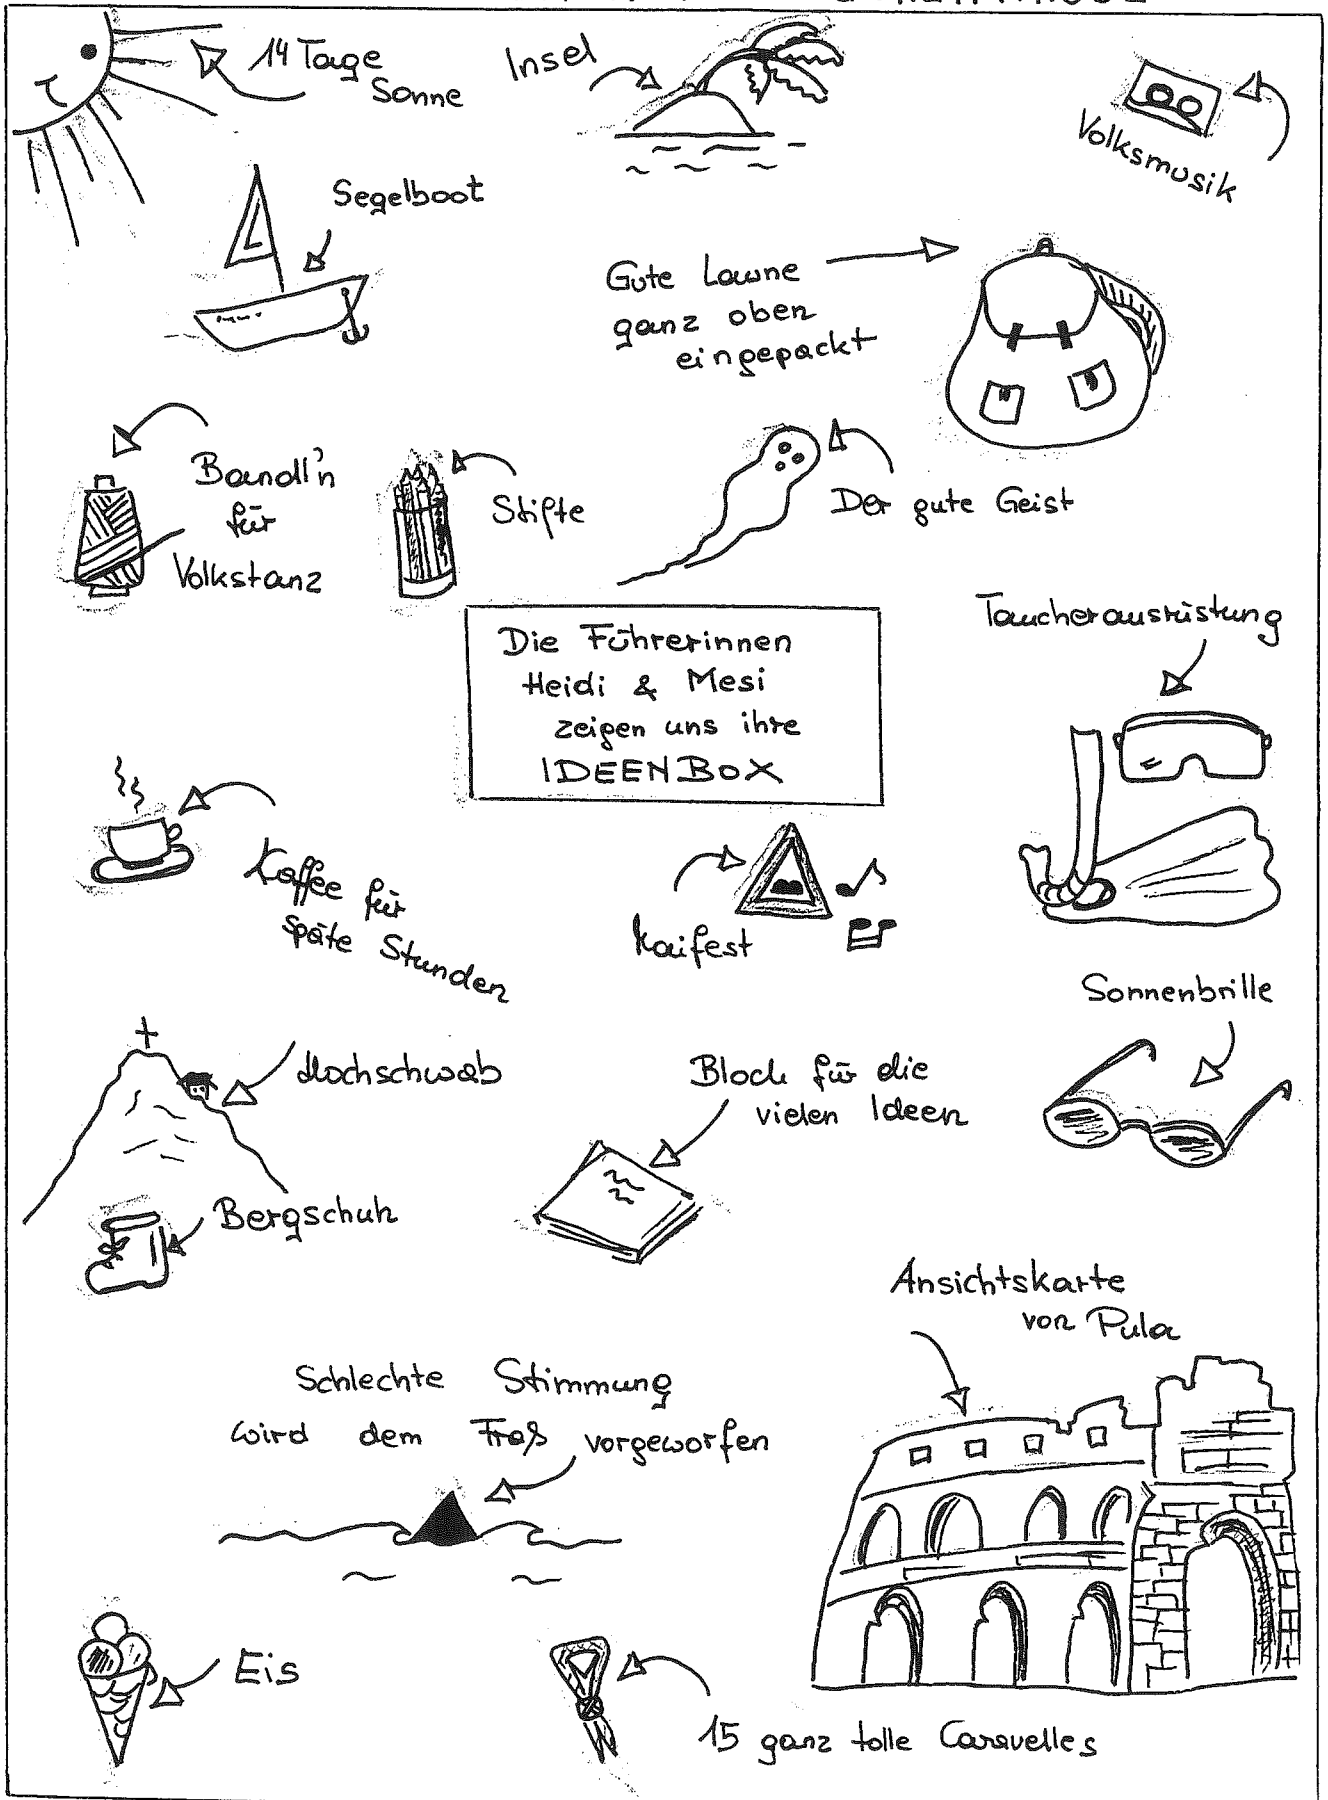 14 Tage
Sonne
Insel
Volksmusik
Segelboot
Gute Laune
ganz oben
eingepackt
Bandl'n
für
Volkstanz
Stifte
Der gute Geist
Die Führerinnen
Heidi & Mesi
zeigen uns ihre
IDEENBOX
Taucherausrüstung
Kaffee für
späte Stunden
Kaifest
Sonnenbrille
Hochschwab
Block für die
vielen Ideen
Bergschuh
Ansichtskarte
von Pula
Schlechte Stimmung
wird dem Fraß vorgeworfen
Eis
15 ganz tolle Caravelles